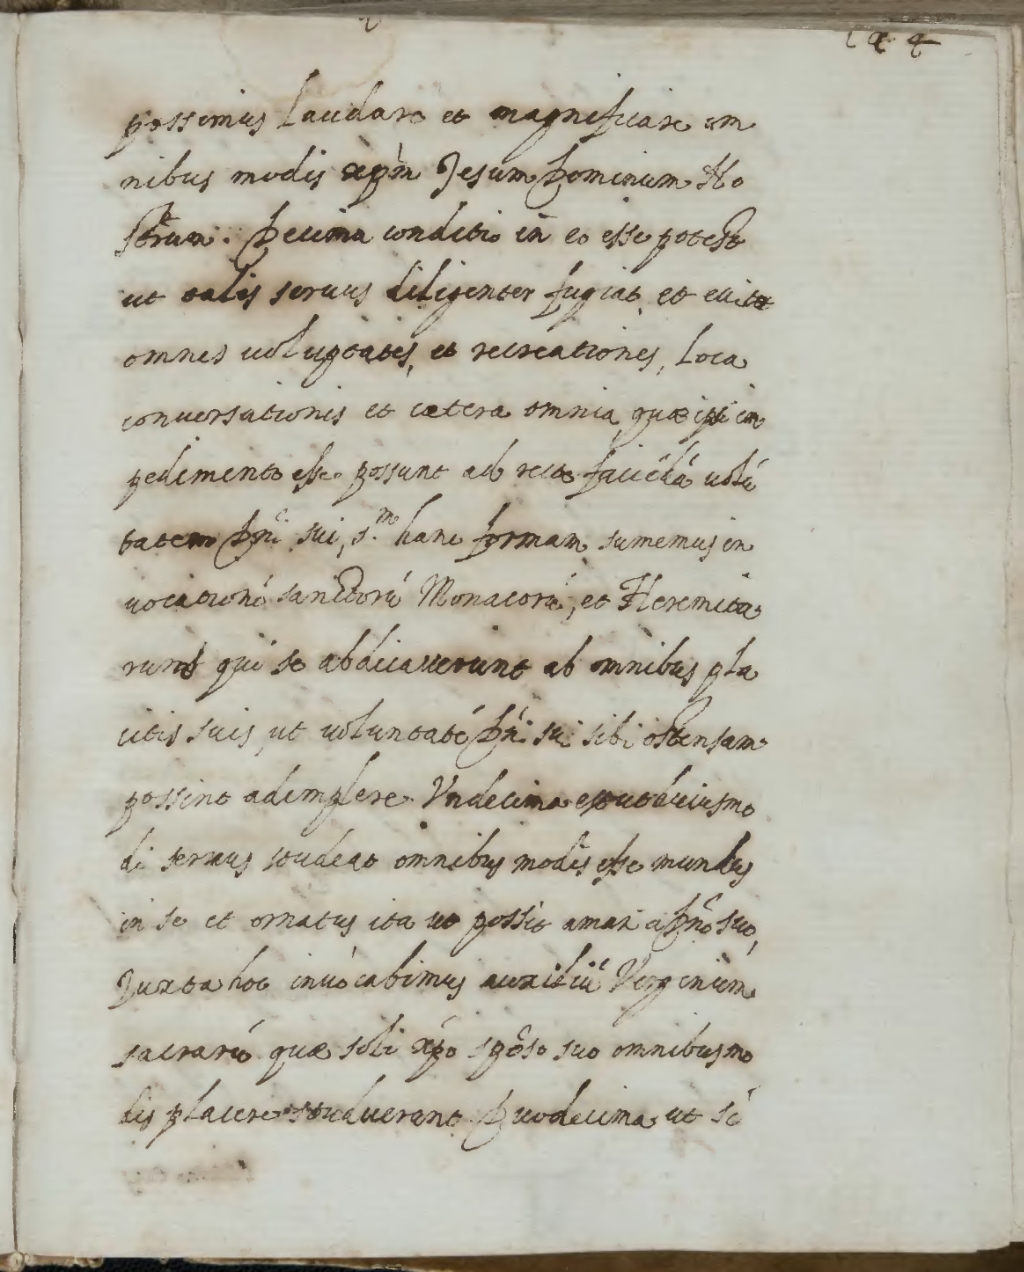 144
possimus laudare et magnificare om
nibus modis xp̄m Jesum Dominum No
strum. Decima conditio in eo esse potest
ut talis servus diligenter fugiat et evitet
omnes voluptates, et recreationes, loca
conversationis et cætera omnia quæ ipsi im
pedimento esse possunt ad recte faciēdā volū
tatem Dn̄i sui, s.m hanc formam sumemus in
vocationē sanctorū Monacorū, et Heremita
rum qui se abdicaverunt ab omnibus pla
citis suis, ut voluntatē Dn̄i sui sibi ostensam
possint adimplere. Undecima est ut huiusmo
di servus studeat omnibus modis esse mundus
in se et ornatus ita ut possit amari a Dn̄o suo,
Juxta hoc invocabimus auxiliū Virginum
sacrarū quæ soli xp̄o spōso suo omnibus mo
dis placere studuerunt. Duodecima ut sē